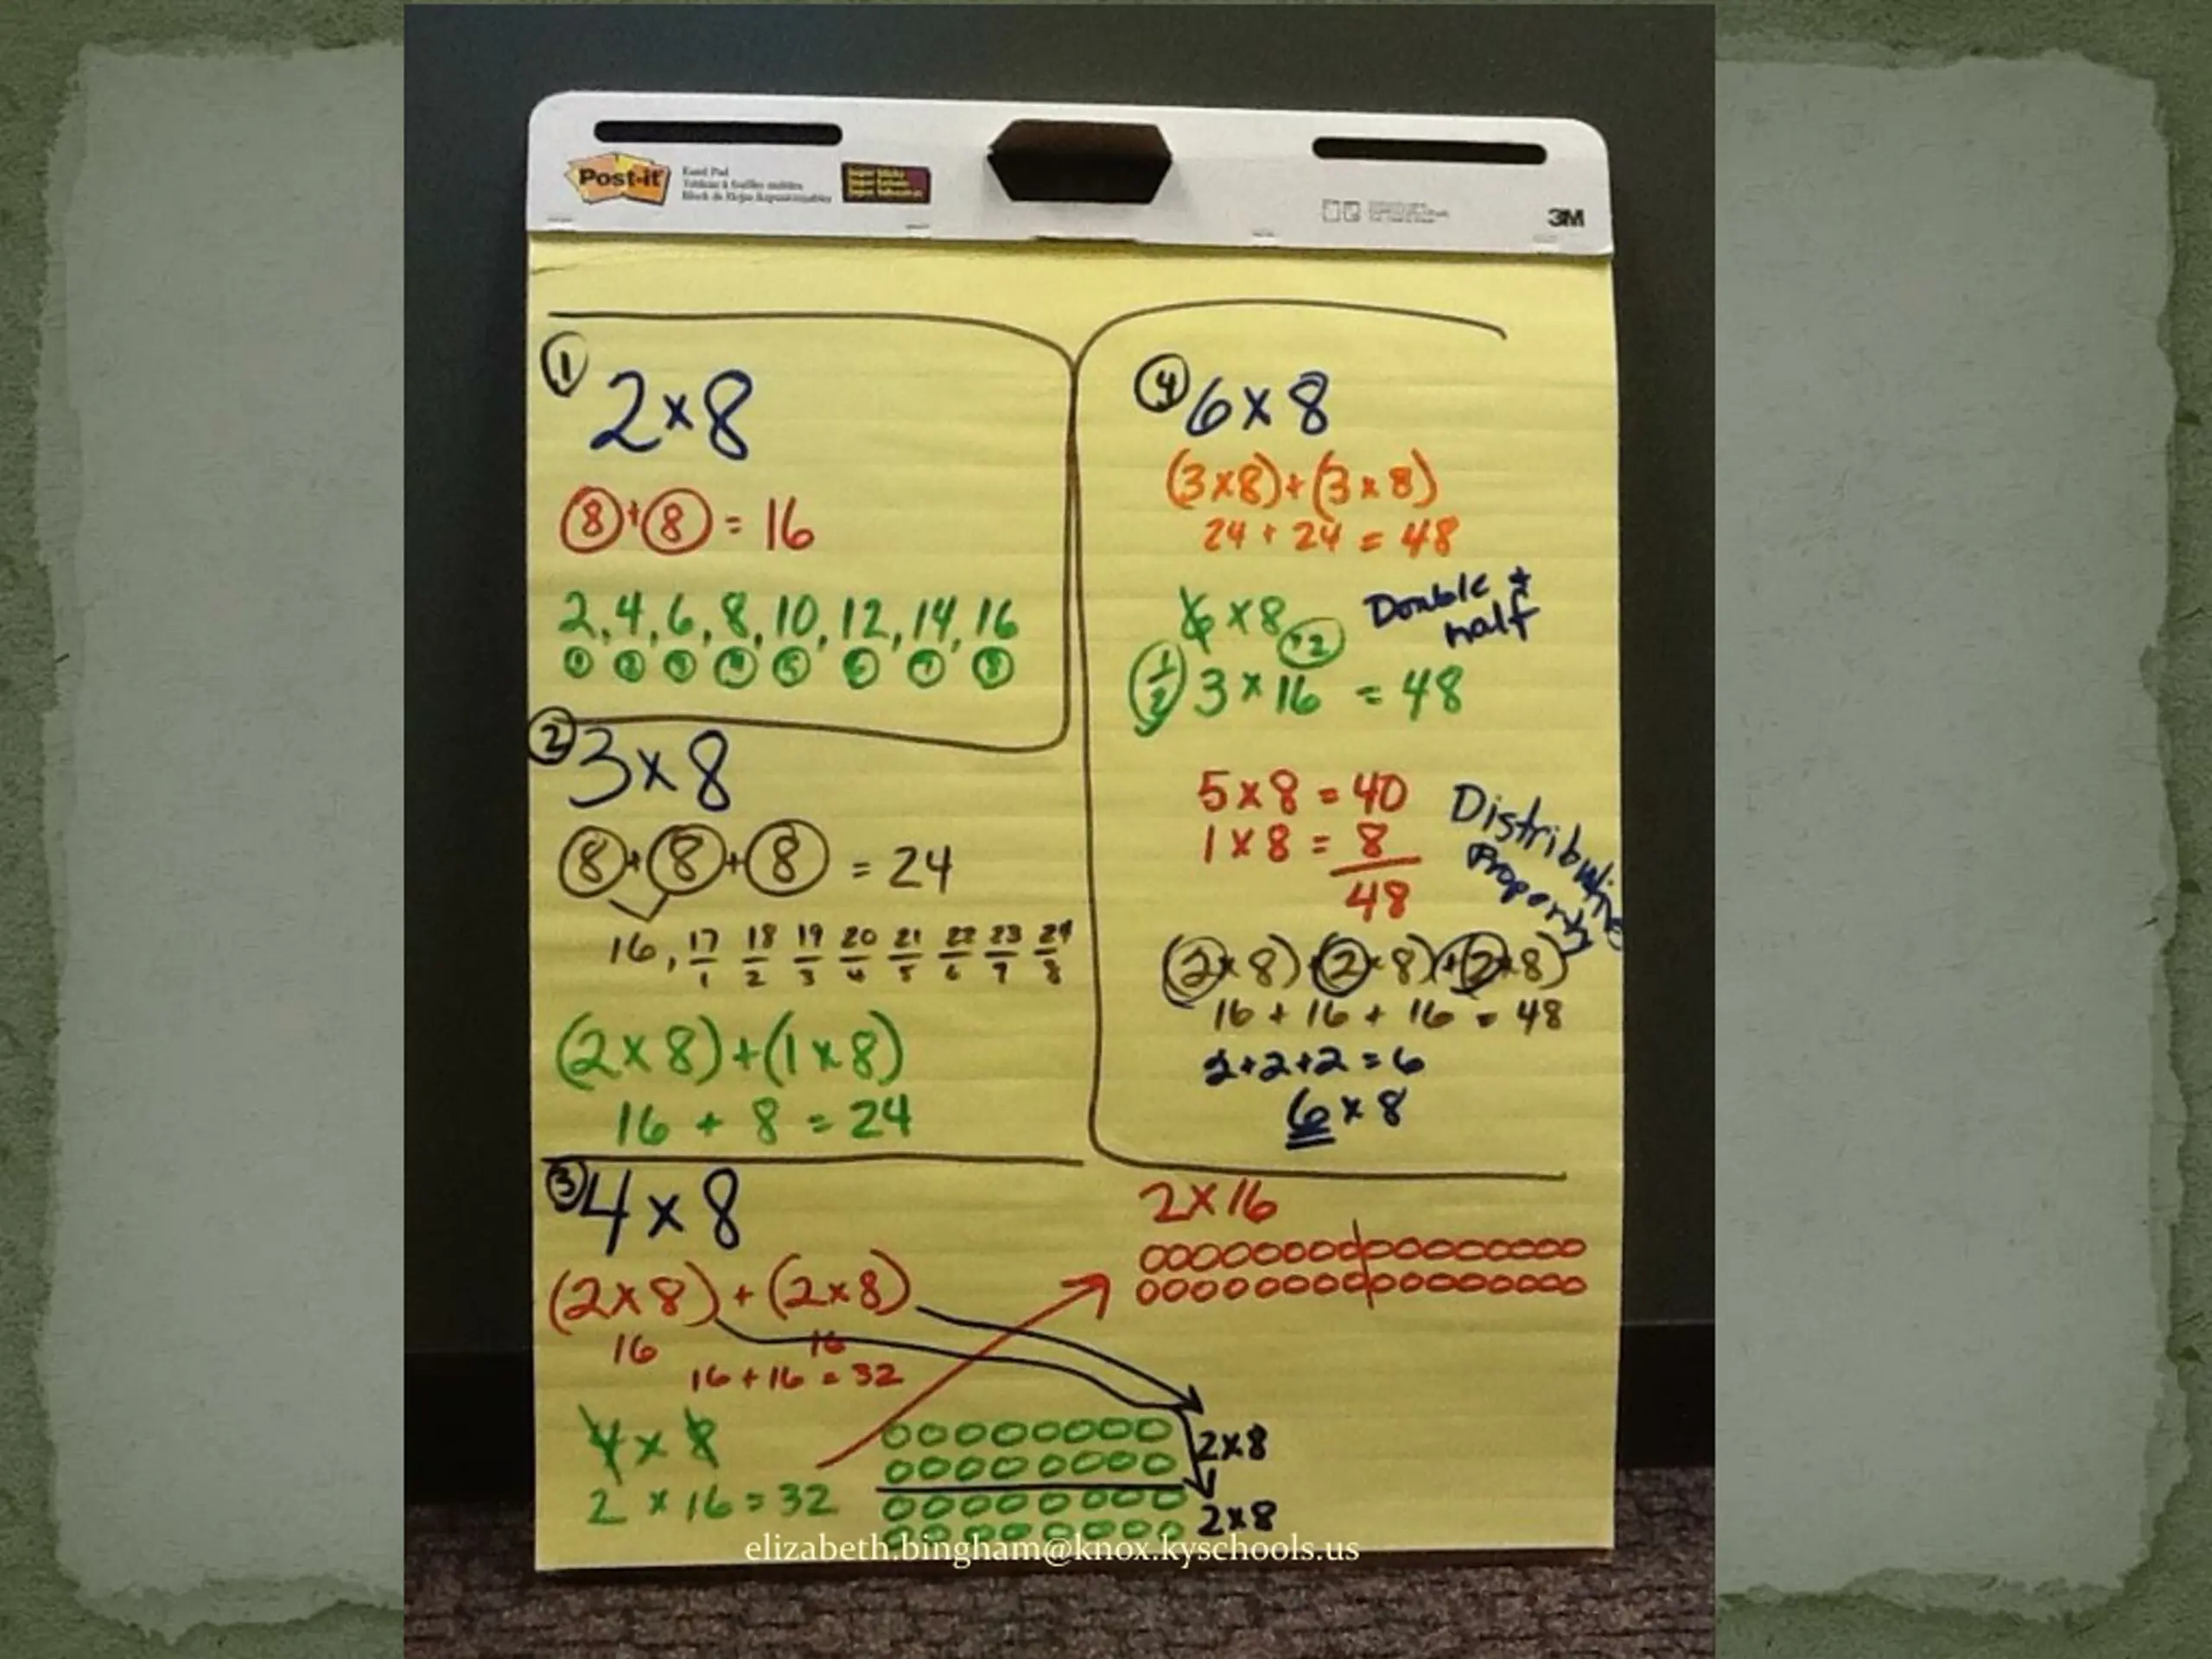 Post-it
Easel Pad
Tableau à feuilles mobiles
Block de Hojas Reposicionables
Super Sticky
3M
1
2 × 8
8 + 8 = 16
2, 4, 6, 8, 10, 12, 14, 16
1 2 3 4 5 6 7 8
2
3 × 8
8 + 8 + 8 = 24
16, 17 18 19 20 21 22 23 24
1 2 3 4 5 6 7 8
(2 × 8) + (1 × 8)
16 + 8 = 24
3
4 × 8
(2 × 8) + (2 × 8)
16 16
16 + 16 = 32
4 × 8
2 × 16 = 32
4
6 × 8
(3 × 8) + (3 × 8)
24 + 24 = 48
6 × 8
Double +
half
1/2 3 × 16 = 48
5 × 8 = 40
1 × 8 = 8
48
Distributive
Property
(2 × 8) + (2 × 8) + (2 × 8)
16 + 16 + 16 = 48
2 + 2 + 2 = 6
6 × 8
2 × 16
2 × 8
2 × 8
elizabeth.bingham@knox.kyschools.us